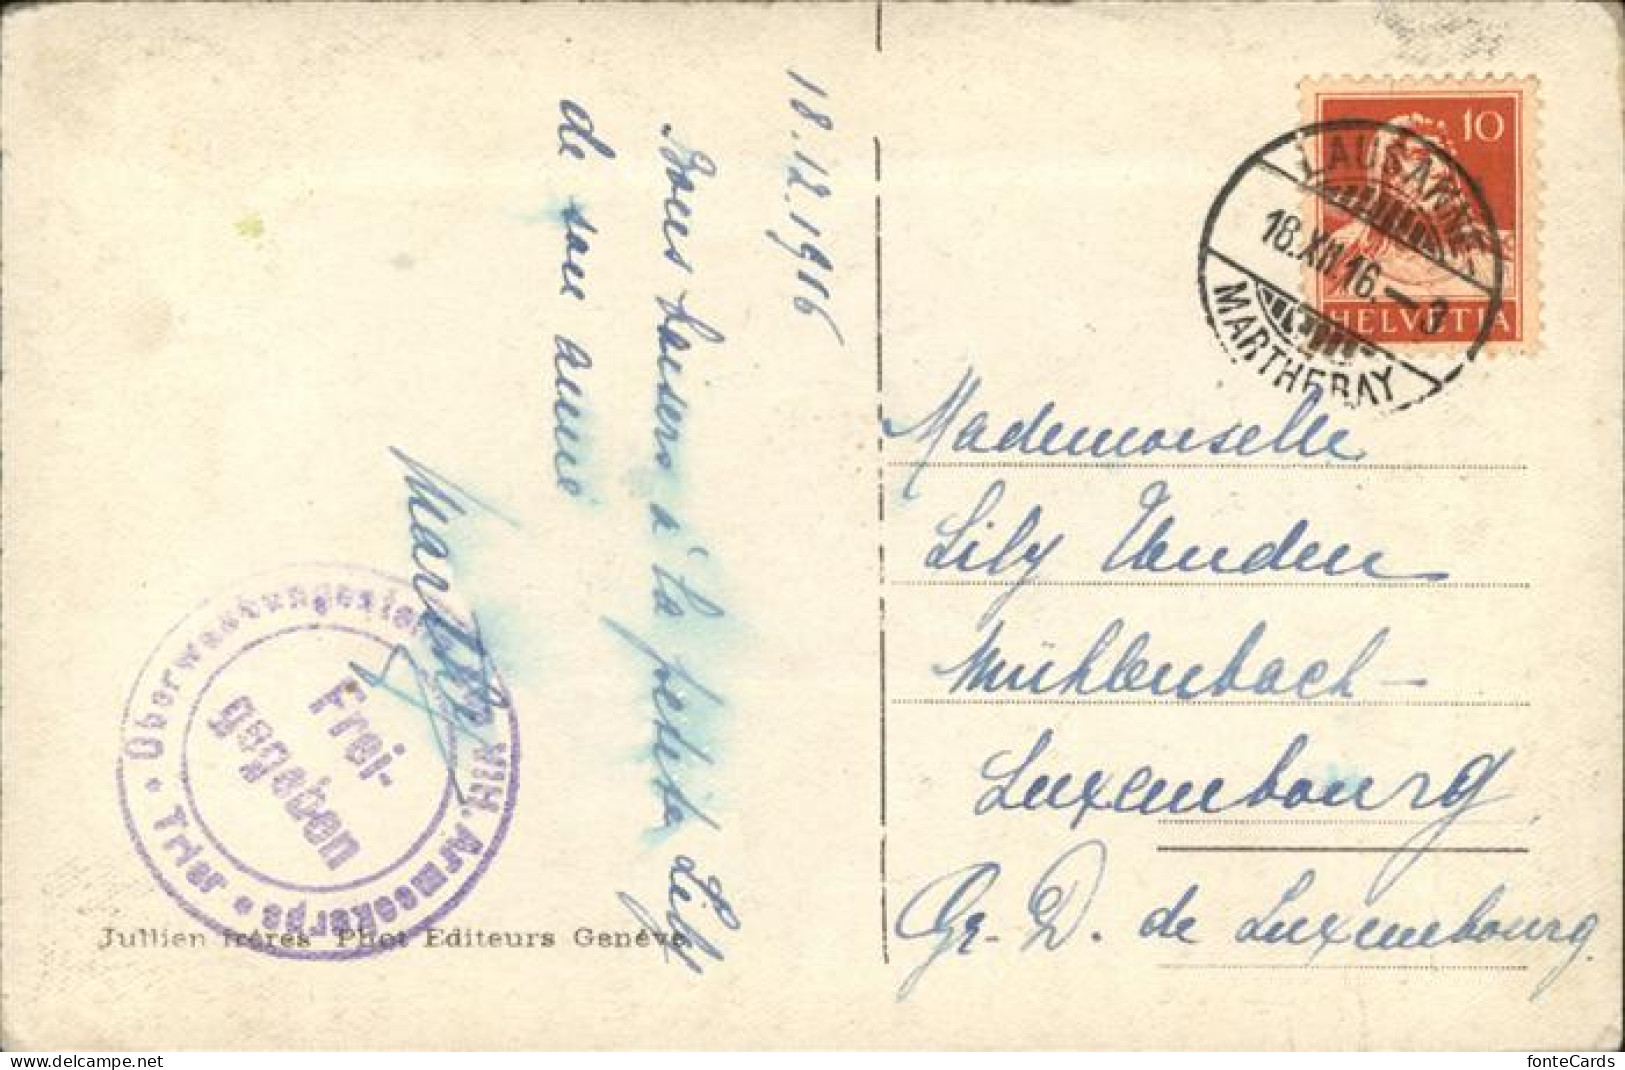 18.12.1916
Bons baisers à la petite Lily
de son amie
Marthy
Überwachungsstelle VIII. Armeekorps
• Trier •
Frei-
gegeben
Jullien frères Phot Editeurs Genève
10
HELVETIA
LAUSANNE
18.XII.16.–3
MARTHERAY
Mademoiselle
Lily
Mühlenbach-
Luxembourg
Gr. D. de Luxembourg.
www.delcampe.net
fonteCards